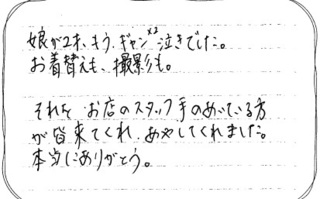 娘が2才、もう、ギャン×2泣きでした。
お着替えも、撮影も。
それを お店のスタッフ手のあいている方
が皆来てくれ、あやしてくれました。
本当にありがとう。